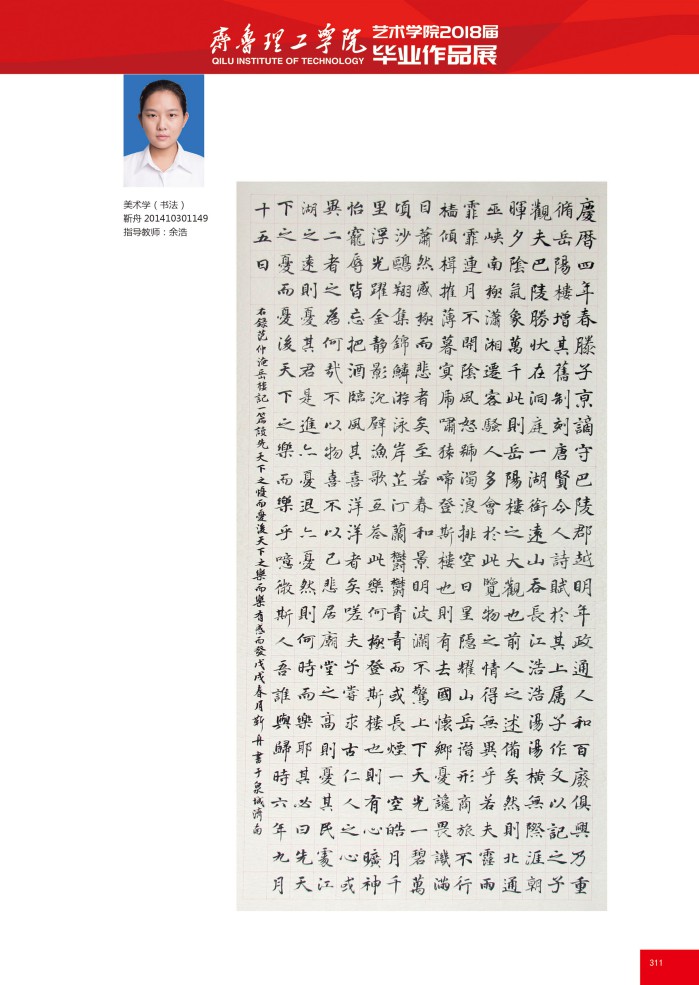 齊魯理工學院
QILU INSTITUTE OF TECHNOLOGY
艺术学院2018届
毕业作品展
美术学（书法）
靳舟 201410301149
指导教师：余浩
慶曆四年春滕子京謫守巴陵郡越明年政通人和百廢俱興乃重
脩岳陽樓增其舊制刻唐賢今人詩賦於其上属子作文以記之予
觀夫巴陵勝状在洞庭一湖銜遠山吞長江浩浩湯湯橫無際涯朝
暉夕陰氣象萬千此則岳陽樓之大觀也前人之述備矣然則北通
巫峡南極瀟湘遷客騷人多會於此覽物之情得無異乎若夫霪雨
霏霏連月不開陰風怒號濁浪排空日星隱耀山岳潛形商旅不行
檣傾楫摧薄暮冥虎嘯猿啼登斯樓也則有去國懷鄉憂讒畏譏滿
目蕭然感極而悲者矣至若春和景明波瀾不驚上下天光一碧萬
頃沙鷗翔集錦鱗游泳岸芷汀蘭鬱鬱青青而或長煙一空皓月千
里浮光躍金静影沉璧漁歌互答此樂何極登斯樓也則有心曠神
怡寵辱皆忘把酒臨風其喜洋洋者矣嗟夫予嘗求古仁人之心或
異二者之為何哉不以物喜不以己悲居廟堂之高則憂其民處江
湖之遠則憂其君是進亦憂退亦憂然則何時而樂耶其必曰先天
下之憂而憂後天下之樂而樂乎噫微斯人吾誰與歸時六年九月
十五日
右録范仲淹岳陽樓記一篇讀先天下之憂而憂後天下之樂而樂有感而發戊戌春月靳舟書于泉城濟南
311